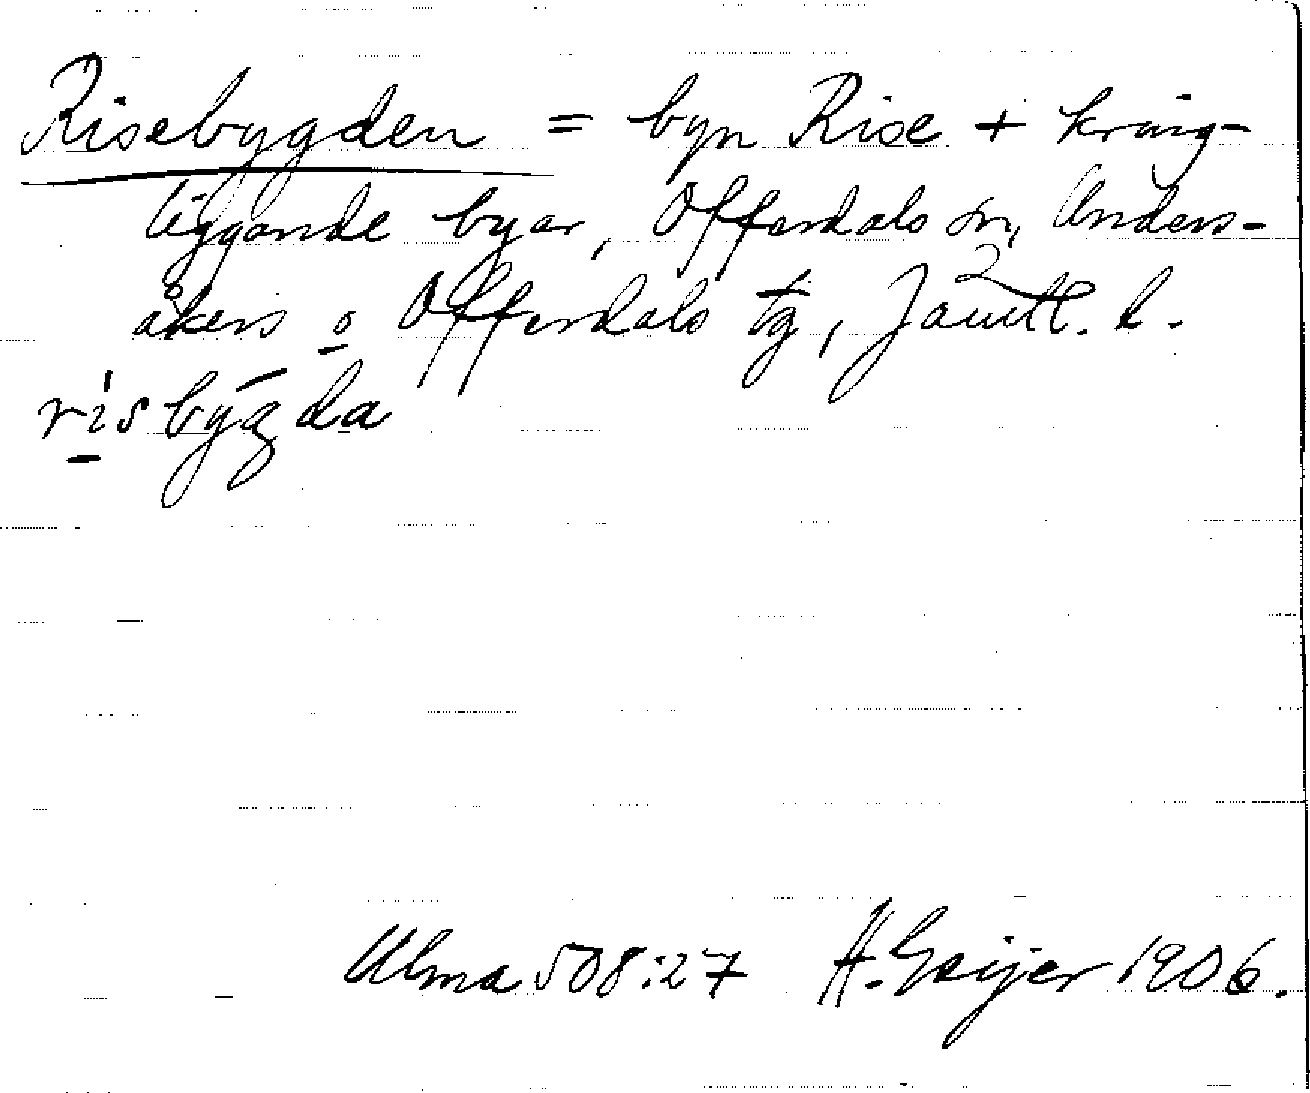 Risebygden = byn Rise + kring-
liggande byar, Offerdals sn, Unders-
åkers o Offerdals tg, Jämtl. l.
risbygda
Ulma 508:27 H. Geijer 1906.